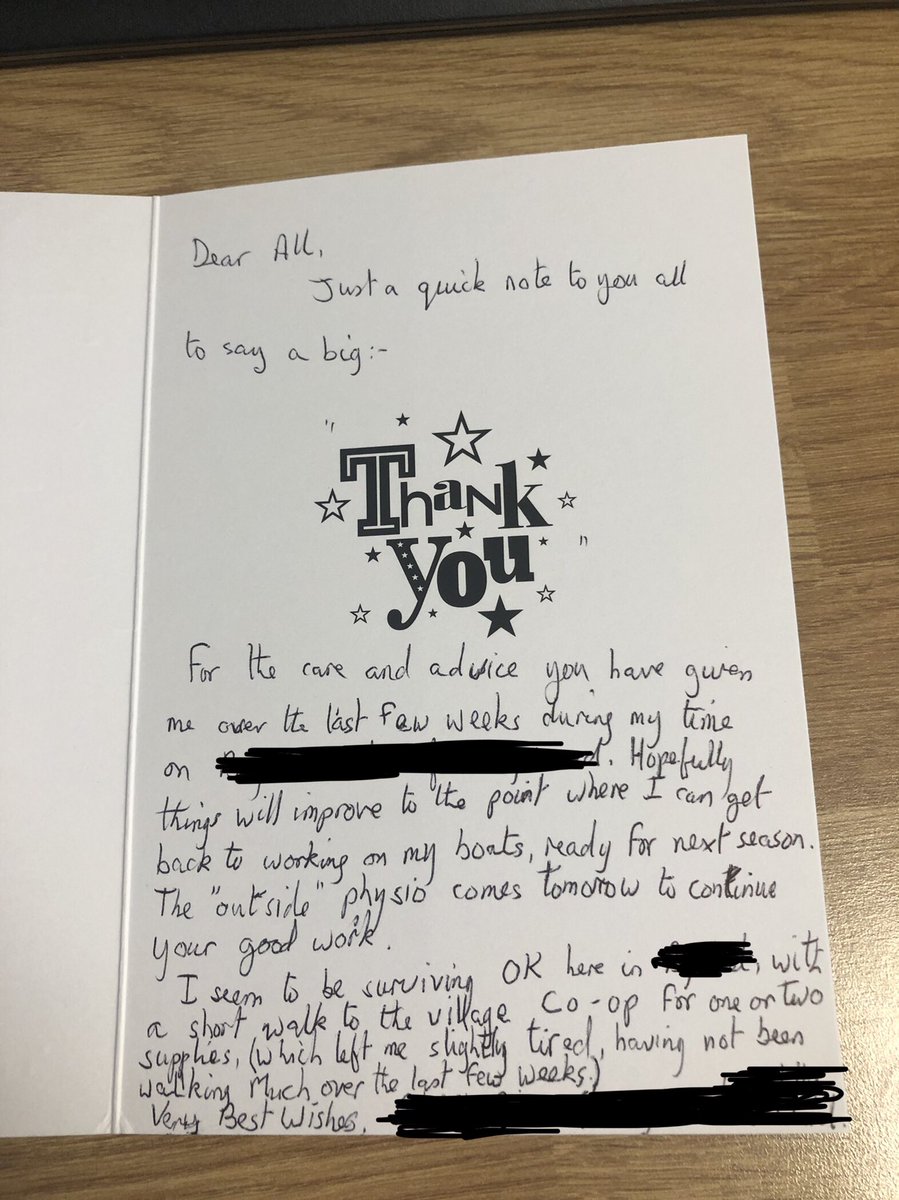 Dear All,
Just a quick note to you all
to say a big:-
"Thank
you"
For the care and advice you have given
me over the last few weeks during my time
on . Hopefully
things will improve to the point where I can get
back to working on my boats, ready for next season.
The "outside" physio comes tomorrow to continue
your good work.
I seem to be surviving OK here in , with
a short walk to the village Co-op for one or two
supplies, (which left me slightly tired, having not been
walking much over the last few weeks.)
Very Best Wishes,